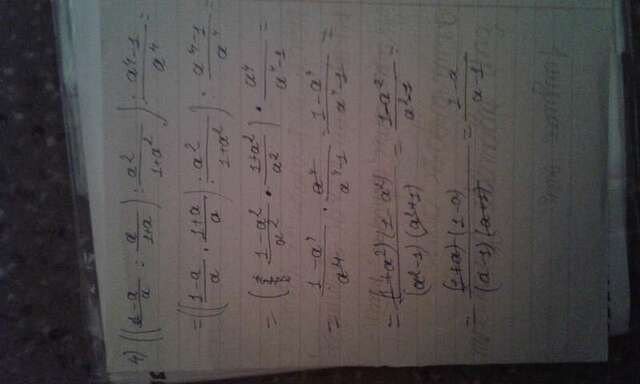 4) (((1-a)/a : a/(1+a)) : a²/(1+a²)) : (a⁴-1)/a⁴ =
= (((1-a)/a · (1+a)/a) : a²/(1+a²)) : (a⁴-1)/a⁴ =
= ((1-a²)/a² · (1+a²)/a²) · a⁴/(a⁴-1) =
= (1-a⁴)/a⁴ · a⁴/(a⁴-1) = (1-a⁴)/(a⁴-1) =
= (1+a²)(1-a²)/(a²-1)(a²+1) = (1-a²)/(a²-1) =
= (1+a)(1-a)/(a-1)(a+1) = (1-a)/(a-1)